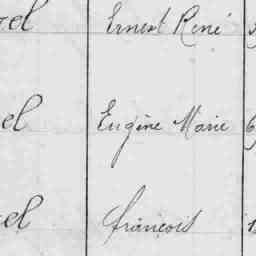 el Ernest René
el Eugène Marie 6
el François 1